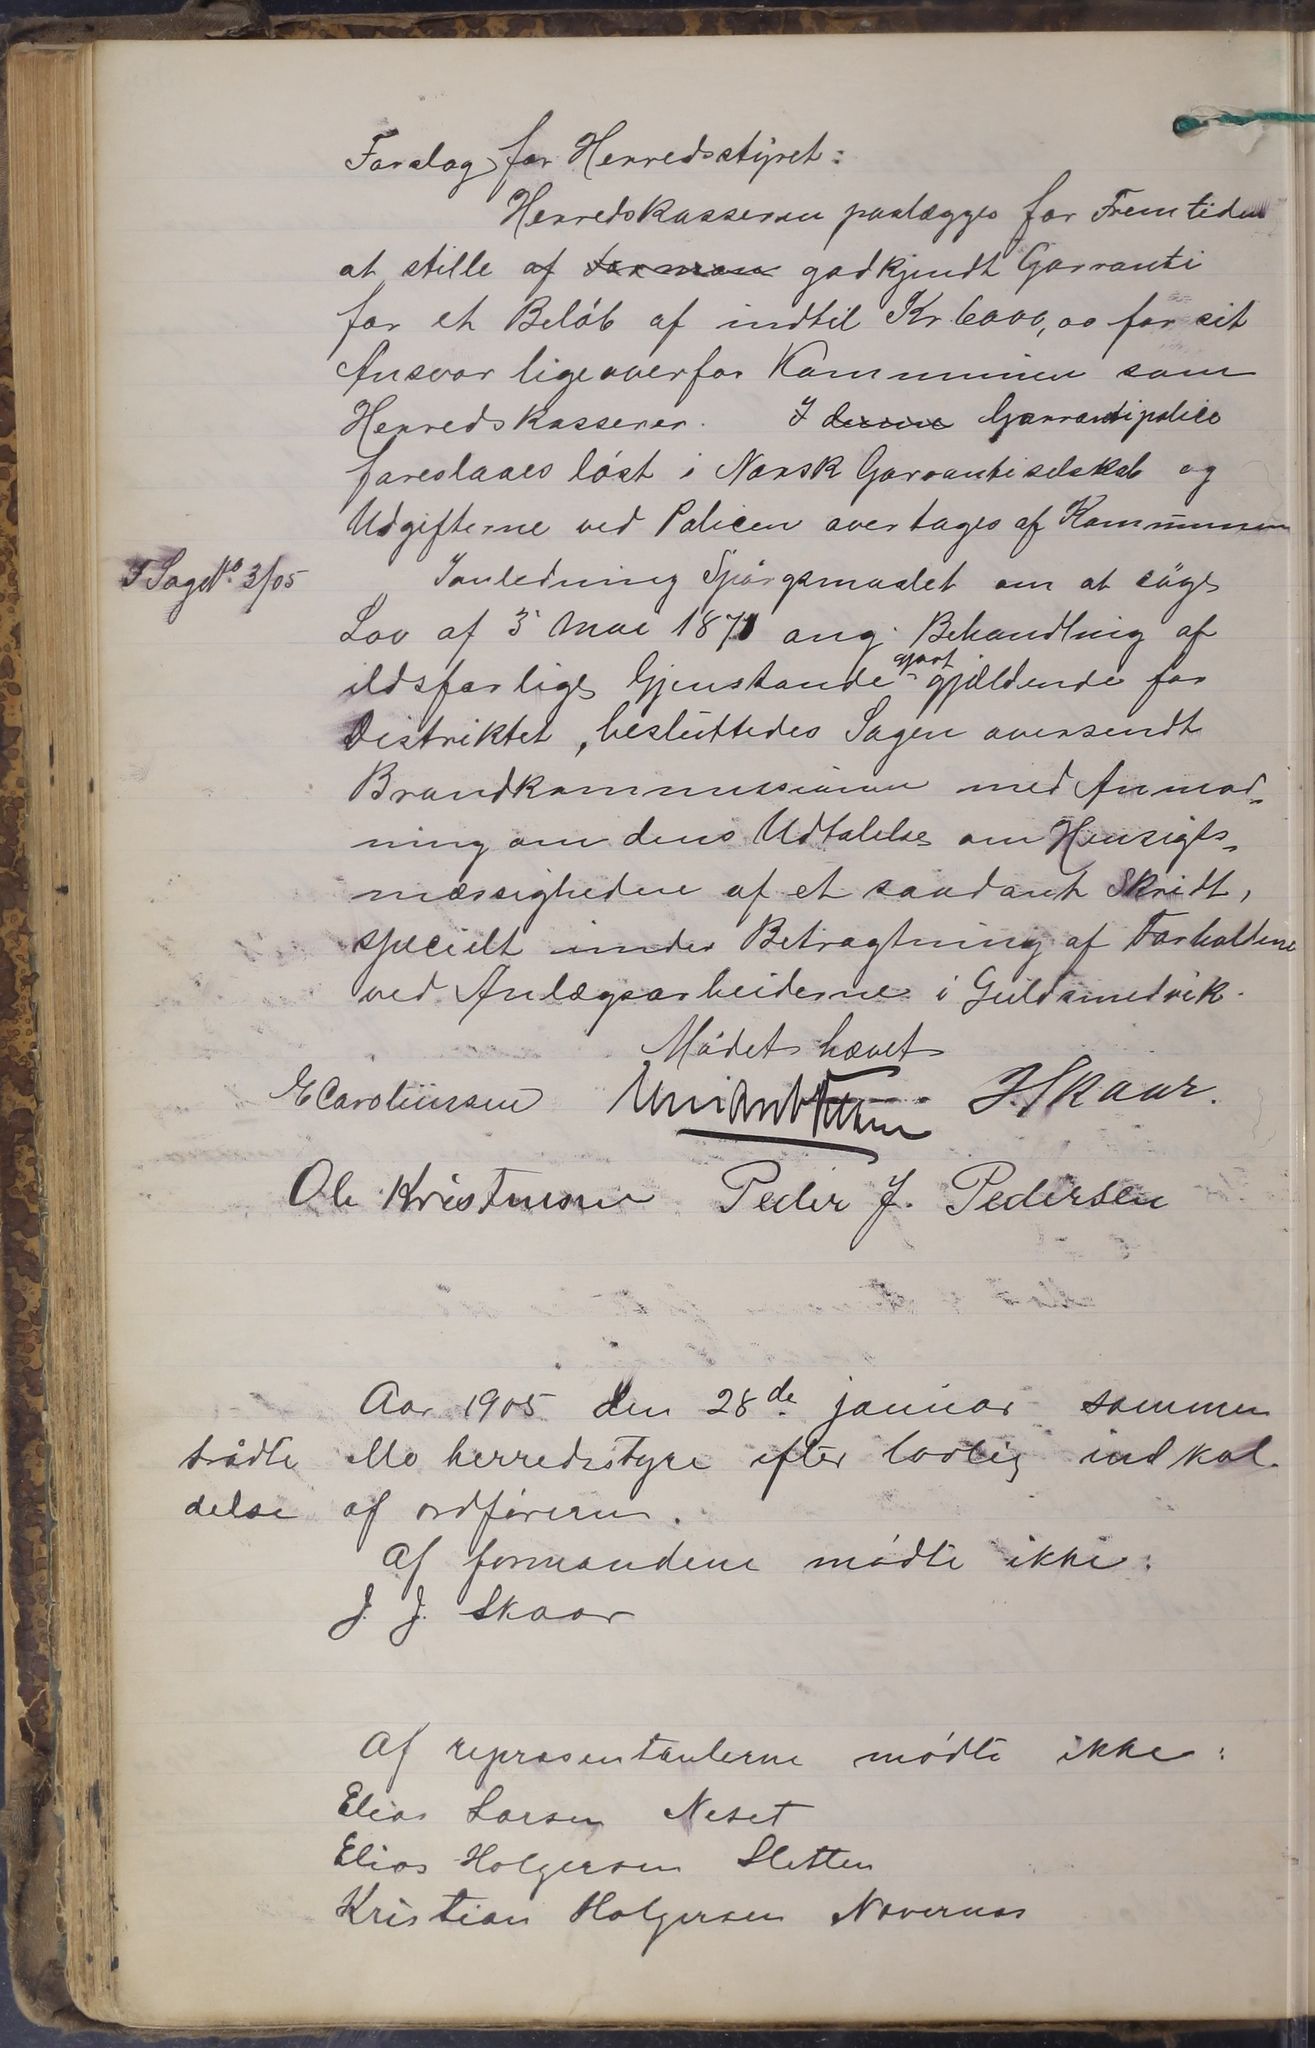 Forslag for Herredsstyret:
Herredskasseren paalægges for Fremtiden
at stille af godkjendt Garranti
for et Beløb af indtil Kr 6000,00 for sit
Ansvar ligeoverfor Kommunen som
Herredskasserer. I denne Garrantipolice
foreslaaes løst i Norsk Garrantiselskab og
Udgifterne ved Policen overtages af Kommunen
F Sag No 3/05
I anledning Spørgsmaalet om at søge
Lov af 3 Mai 1871 ang. Behandling af
ildsfarlige Gjenstande gjort gjældende for
Distriktet, besluttedes Sagen oversendt
Brandkommissionen med Anmod-
ning om dens Udtalelse om Hensigts-
mæssigheden af et saadant Skridt,
specielt under Betragtning af Forholdene
ved Anlægsarbeiderne i Guldsmedvik.
Mødet hævet
E Carolinssen J. Skaar.
Ole Kristensen Peder J. Pedersen
Aar 1905 den 28de januar sammen
trådte Mo herredsstyre efter lovlig indkal-
delse af ordføreren.
Af formændene mødte ikke:
J. J. Skaar
Af repræsentanterne mødte ikke:
Elias Larsen Neset
Elias Holgersen Sletten
Kristian Holgersen Nævernes